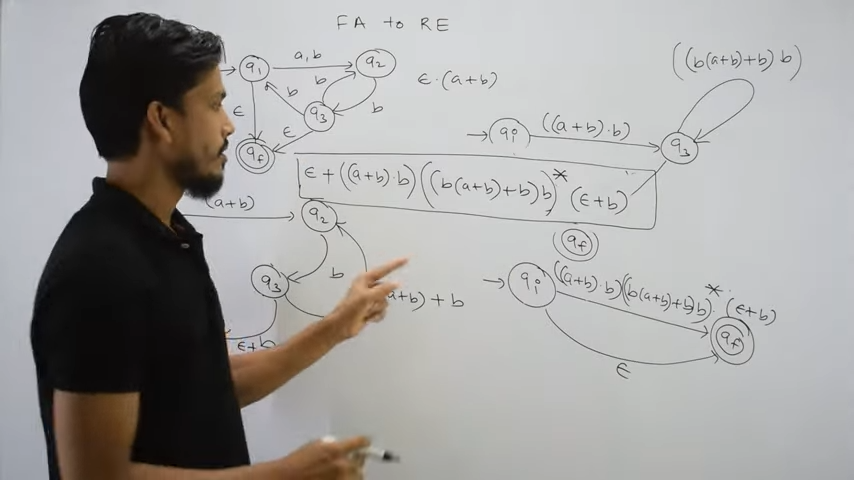 FA to RE
q1
a,b
q2
b
b
b
q3
ε
ε
qf
ε·(a+b)
((b(a+b)+b)b)
qi
((a+b)·b)
q3
ε+((a+b)·b)((b(a+b)+b)b)* (ε+b)
(a+b)
q2
qf
b
q3
a+b)+b
ε+b
qi
((a+b)·b)((b(a+b)+b)b)*·(ε+b)
qf
ε